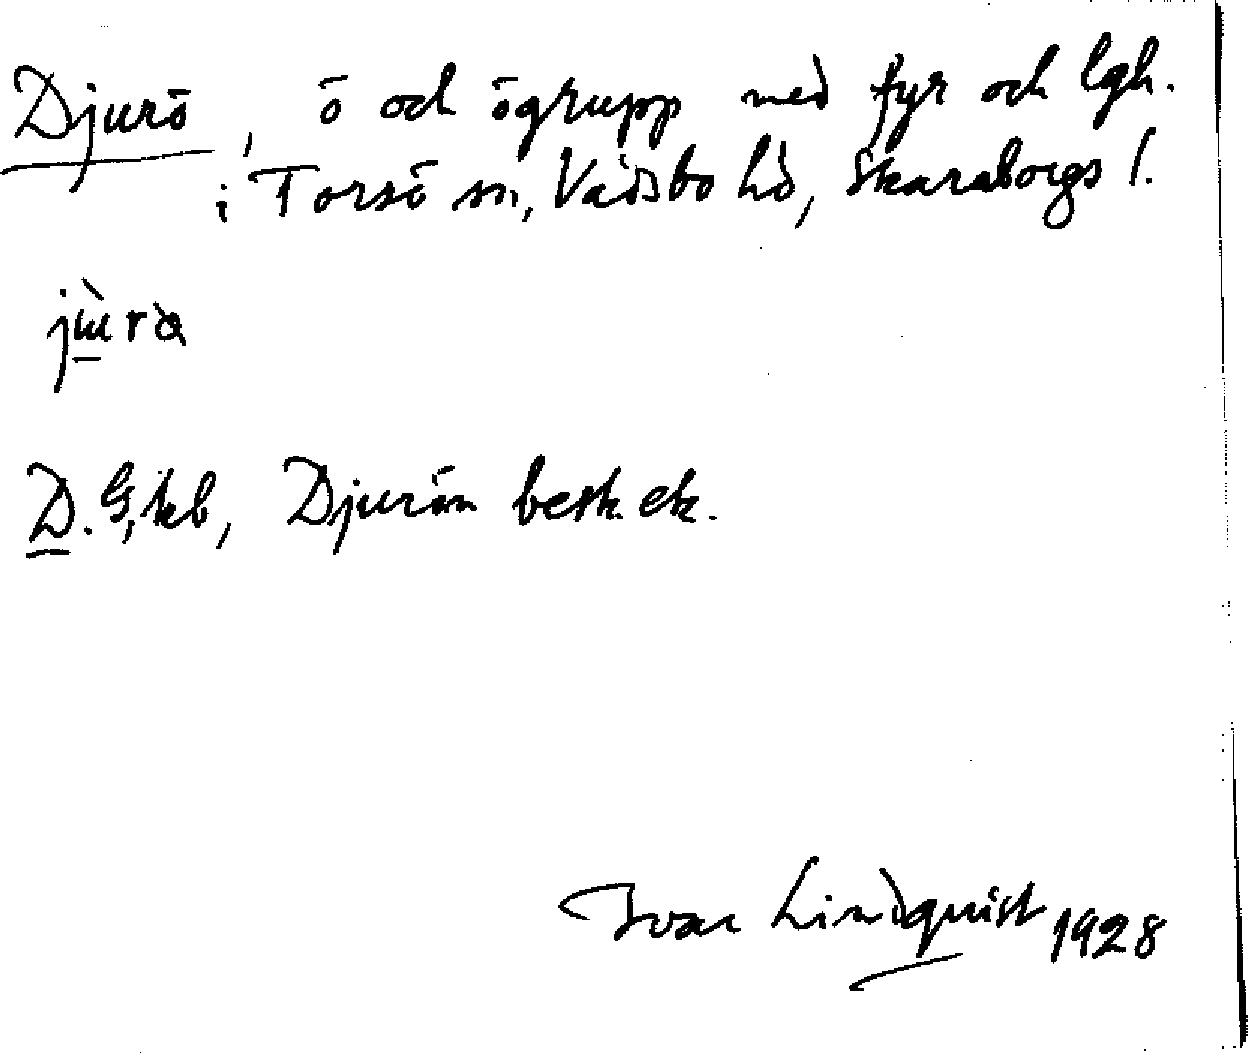 Djurö, ö och ögrupp med fyr och lgh.
i Torsö sn, Vadsbo hd, Skaraborgs l.
D. G, kb, Djurön besk. ek.
Ivar Lindquist 1928